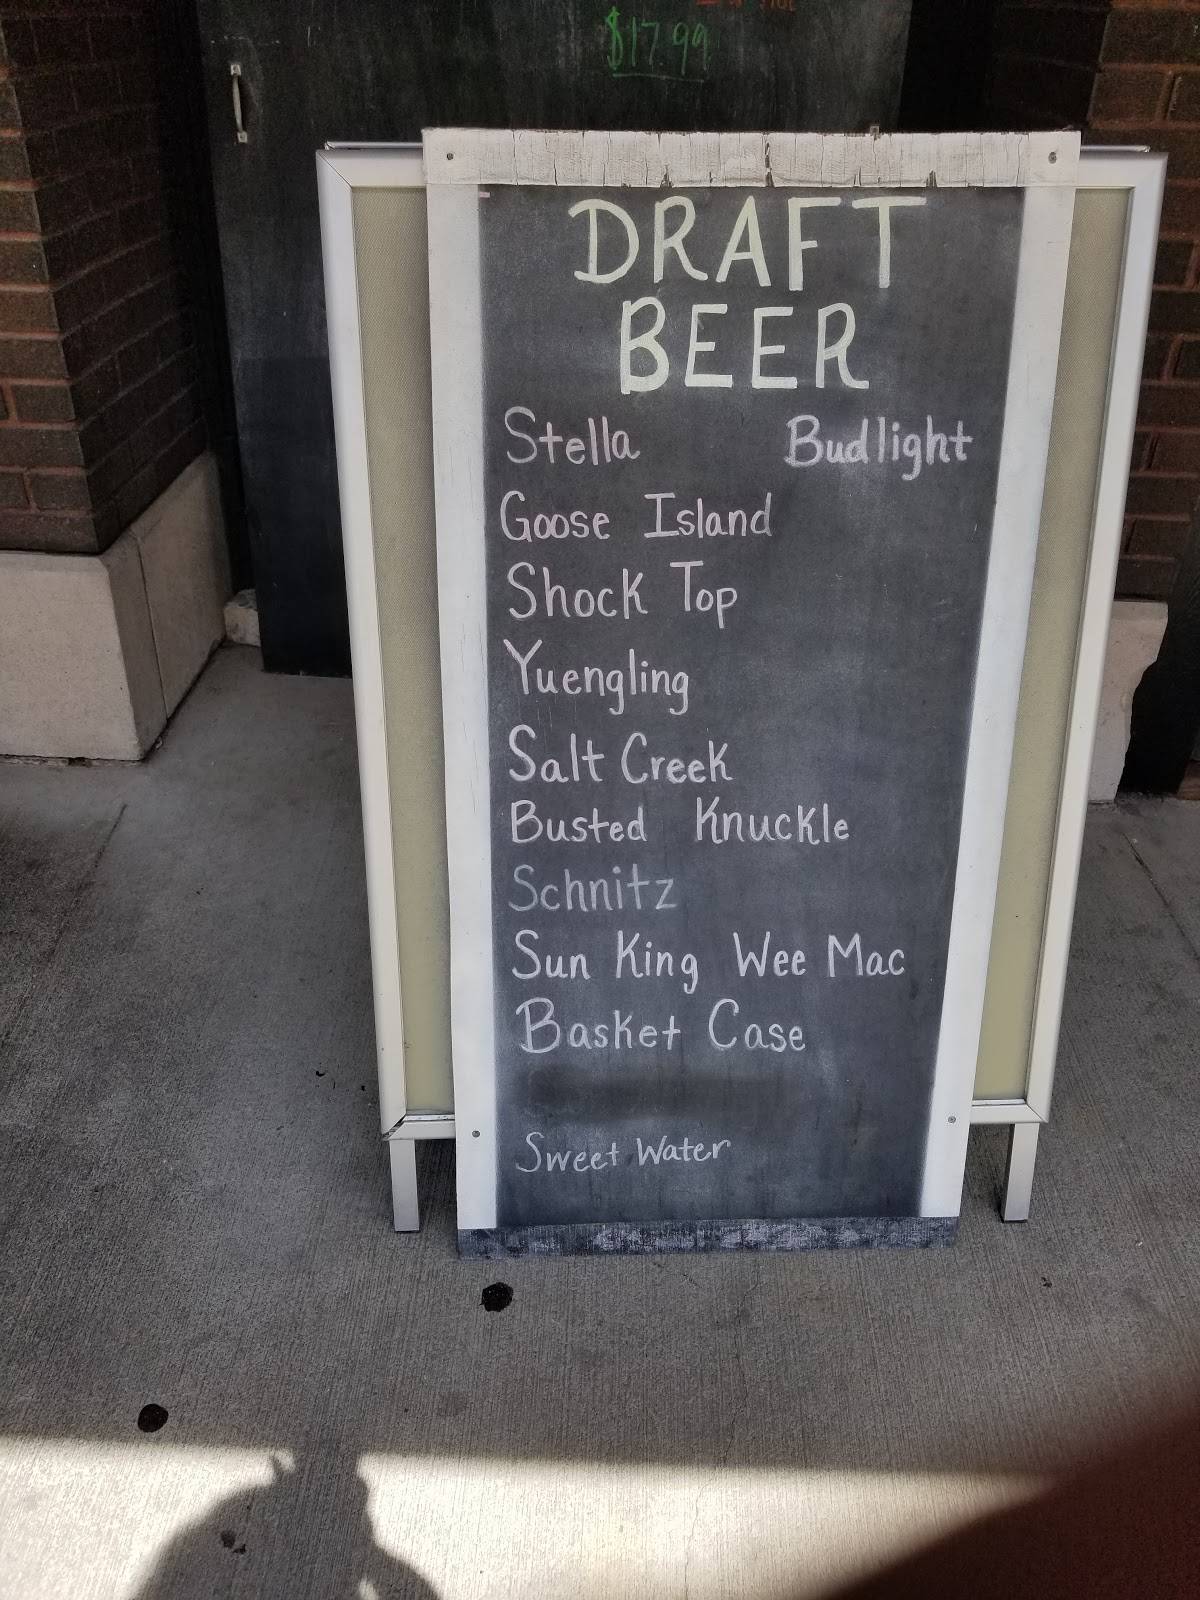 $17.99
DRAFT
BEER
Stella Budlight
Goose Island
Shock Top
Yuengling
Salt Creek
Busted Knuckle
Schnitz
Sun King Wee Mac
Basket Case
Sweet Water